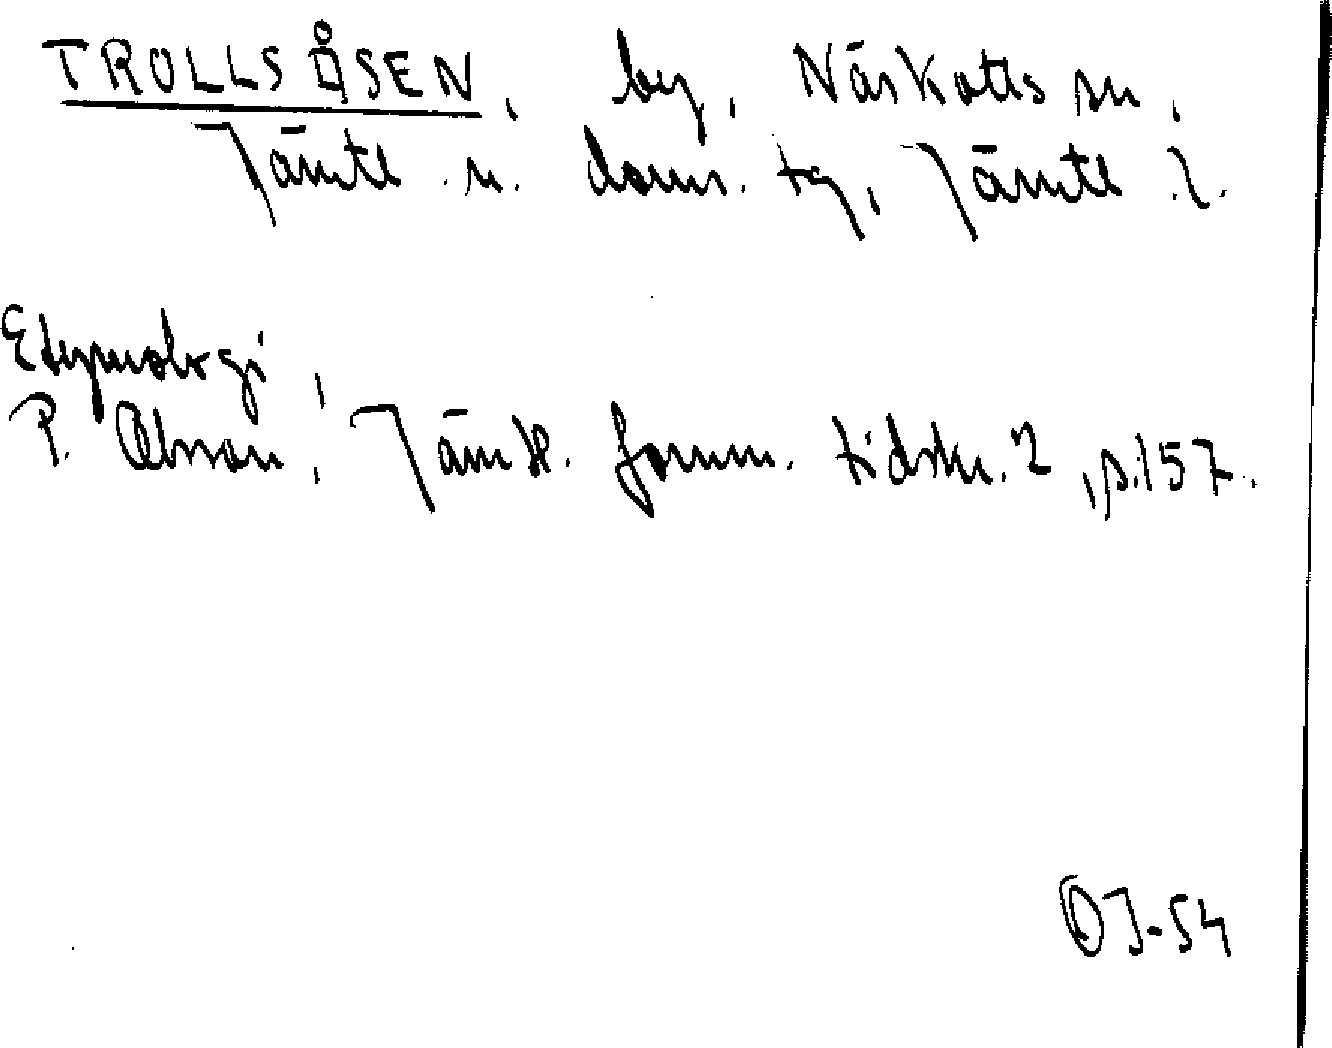 TROLLSÅSEN, by, Näskotts sn,
Jämtl. n. doms. tg, Jämtl. l.
Etymologi
P. Olsson, Jämtl. fornm. tidskr. 2, s. 157.
OJ-54